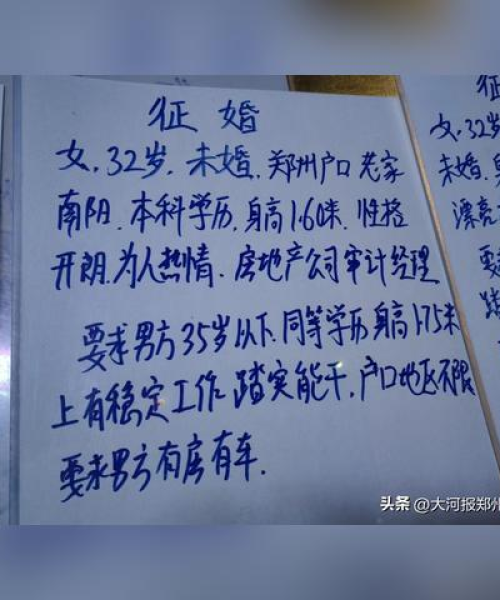 征婚
女,32岁,未婚,郑州户口 老家
南阳.本科学历,身高1.60米.性格
开朗.为人热情.房地产公司审计经理
要求男方35岁以下.同等学历 身高1.75米
上有稳定工作 踏实能干,户口地区不限
要求男方有房有车.
征
女,32岁
未婚
漂亮
要
踏
头条 @大河报郑州